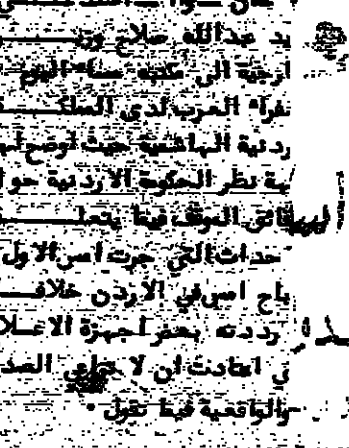 يد عبدالله صلاح وز
رجية الى مكتبه مساء اليوم
سفراء العرب لدى المملكة
ردنية الهاشمية حيث اوضح لهم
هة نظر الحكومة الاردنية حو
قائق الموقف فيما يتعلـ
حداث التي جرت امس الاول
باح امس في الاردن خلافـ
رددته بعض اجهزة الاعلا
ي اعتادت ان لا الصد
والواقعية فيما تقول ٠